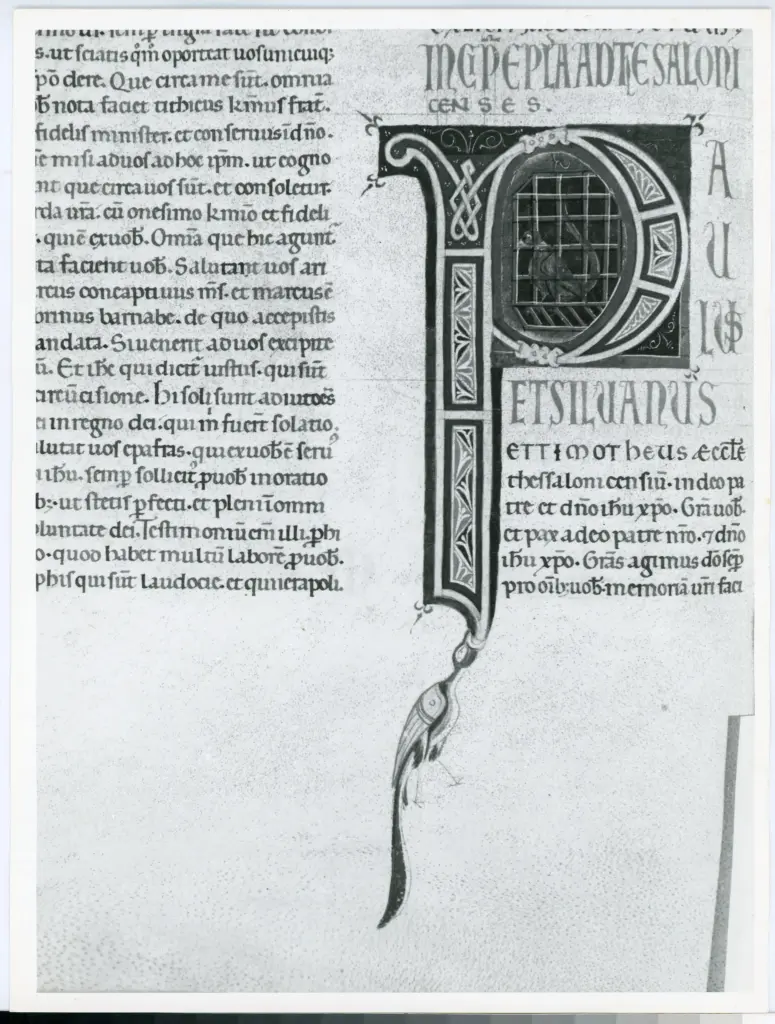 s. ut sciatis q̄m̄ oporteat uos unicuiq;
Que circa me sūt. omnia
nota faciet tithicus kmus frat̄.
fidelis minister. et conseruus ī dn̄o.
misi ad uos ad hoc ip̄m. ut cogno
que circa uos sūt. et consoletur
cū onesimo kmīo et fideli
Om̄ia que hic agunt̄
ta facient uob̄. Salutant uos ari
cus concaptiuus m̄s. et marcus ē
barnabe. de quo accepistis
andata. Si uenerit ad uos excipite
Et ih̄c qui dicit̄ iustus. qui sūt
circūcisione. hi soli sunt adiutores
in regno dei. qui m̄ fuer̄t solatio.
lutat uos epafras. qui ex uob̄ ē seru
ih̄u. semp̄ sollicit̄ p̄ uob̄ in oratio
b;. ut stetis p̄fecti. et pleni ī omni
oluntate dei. Testimoniū eni illi p̄hi
o. quod habet multū laborē p̄ uob̄.
p his qui sūt laudocie. et qui ierapoli.
INCIP EPLA AD THESALONI
CENSES.
PAULUS
ET SILUANUS
ET TIMOTHEUS Æccl̄e
thessalonicensiū. in deo pa
tre et dn̄o ih̄u xp̄o. Grā uob̄.
et pax a deo patre nr̄o. ⁊ dn̄o
ih̄u xp̄o. Grās agimus dō sēp
pro oīb; uob̄. memoriā ur̄i faci